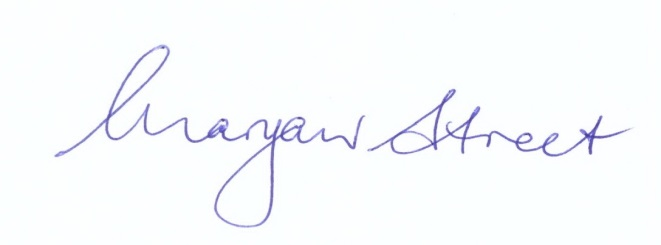 Maryan Street